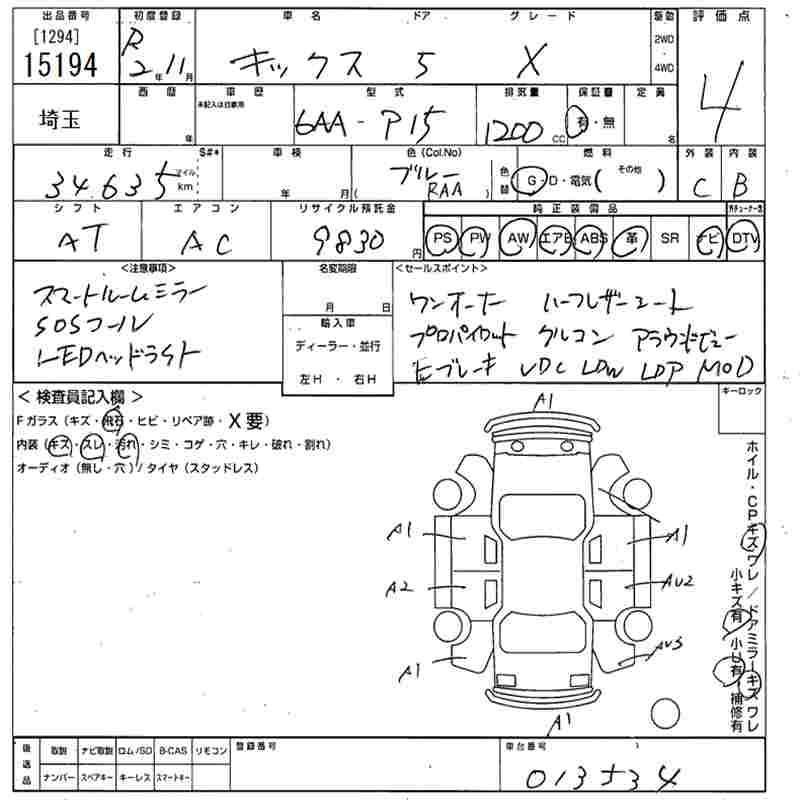 出品番号 初度登録 車名 ドア グレード 駆動 評価点
[1294] R 2WD
15194 2年 11月 キックス 5 X 4WD 4
西暦 車歴 型式 排気量 保証書 定員
未記入は自家用
埼玉 年 6AA-P15 1200cc 有・無 名
走行 S#* 車検 色(Col.No) 燃料 外装 内装
34.635 マイル km 年 月 ( ブルー RAA ) 色替 G・D・電気( その他 ) C B
シフト エアコン リサイクル預託金 純正装備品 外チューナー含
AT AC 9830円 PS PW AW エアB ABS 革 SR ナビ DTV
<注意事項> 名変期限 <セールスポイント>
スマートルームミラー 月 日 ワンオーナー ハーフレザーシート
SOSコール 輸入車 プロパイロット クルコン アラウンドビュー
LEDヘッドライト ディーラー・並行 Eブレーキ VDC LDW LDP MOD
左H ・ 右H
<検査員記入欄> キーロック
Fガラス(キズ・飛石・ヒビ・リペア跡・X要)
内装(キズ・スレ・汚れ・シミ・コゲ・穴・キレ・破れ・割れ)
オーディオ(無し・穴)/タイヤ(スタッドレス)
A1
A1 A1
A2 AU2
A1 AU3
A1
ホイル・CPキズワレ/ドアミラーキズワレ
小キズ有 小U有 補修有
後送品 取説 ナビ取説 ロム/SD B-CAS リモコン 登録番号 車台番号
ナンバー スペアキー キーレス スマートキー 013534